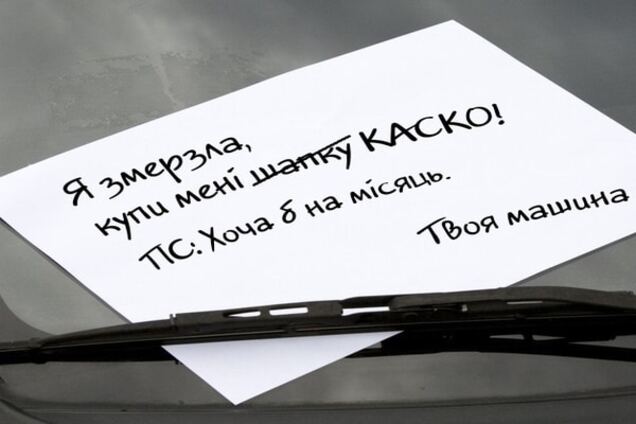 Я змерзла,
купи мені шапку КАСКО!
ПС: Хоча б на місяць.
Твоя машина